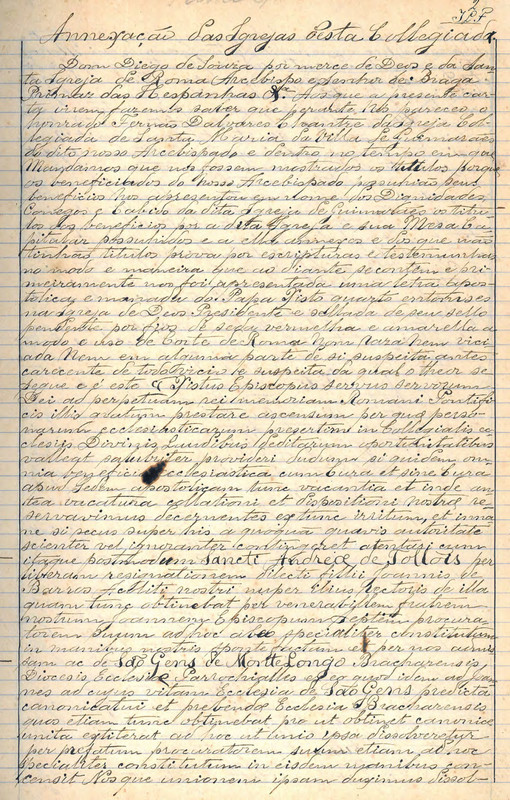 Annexação das Igrejas desta Collegiada
Dom Diogo de Souza por merce de Deos e da San-
ta Igreja de Roma Arcebispo e Senhor de Braga
Primaz das Hespanhas &ª. A os que a presente car-
ta virem fazemos saber que perante Nós pareceo o
honrado Fernão Dalvares Chantre da Igreja Col-
legiada de Santa Maria da Villa de Guimarães
do dito nosso Arcebispado e dentro no tempo em que
Mandamos que nos fossem mostrados os titulos porque
os beneficiados do nosso Arcebispado possuhião seus
beneficios Nos apresentou em nome dos Dignidades
Conegos e Cabido da dita Igreja de Guimarães os titu-
los dos beneficios por a dita Igreja e sua Meza Ca-
pitular possuhidos e a ella annexos e dos que não
tinhão titulos prova por escripturas e testemunhas
no modo e maneira que ao diante se contem e pri-
meiramente nos foi apresentada uma letra apos-
tolica emanada do Papa Sisto quarto
na Igreja de Deos Presidente e sellada de seu sello
pendente por fios de seda vermelha e amarella a
modo e uso de Corte de Roma nom raza nem vici
ada nem em alguma parte de si suspeita antes
carecente de todo vicio e suspeita da qual o theor se
segue e é este Sistus Episcopus servus servorum
Dei ad perpetuam rei memoriam Romani Pontifi-
cis illi gratum prestare ascensum per quae perso-
narum ecclesiasticarum presertim in Collegiatis e-
clesiis Divinis Laudibus deditarum oportunitatibus
valleat salubriter provideri dudum si quidem om
nia beneficia ecclesiastica cum Cura et sine Cura
apud Sedem apostolicam tunc vacantia et inde an-
tea vacatura collationi et dispositioni nostrae re-
servavimus decernentes ex tunc irritum et inna-
ne si secus super his a quoquam quavis autoritate
scienter vel ignoranter contingeret atentari cum
itaque postmodum Sancti Andreæ de Tollois per
liberam resignationem dilecti filii Joannis de
Barros Acoliti nostri nuper ilius Rectoris de illa
quam tunc obtinebat per venerabilem fratrem
nostrum Joannem Episcopum Septim procura-
torem suum ad hoc abeo specialiter constitutum
in manibus nostris sponte factam et per nos admis
sam ac de São Gens de Monte Longo Bracharensis
Diocesis Ecclesiæ Parrochialles ex eo quod idem ad Joan
nes ad cujus vitam Ecclesia de São Gens predicta
canonicatui et prebendæ Ecclesia Bracharensis
quos etiam tunc obtinebat pro ut obtinet canonice
unita extiterat ad hoc ut unio ipsa dissolveretur
per prefatum procuratorem suum etiam ad hoc
specialiter constitutum in eisdem manibus con-
censit Nos que unionem ipsam duximus dissol-